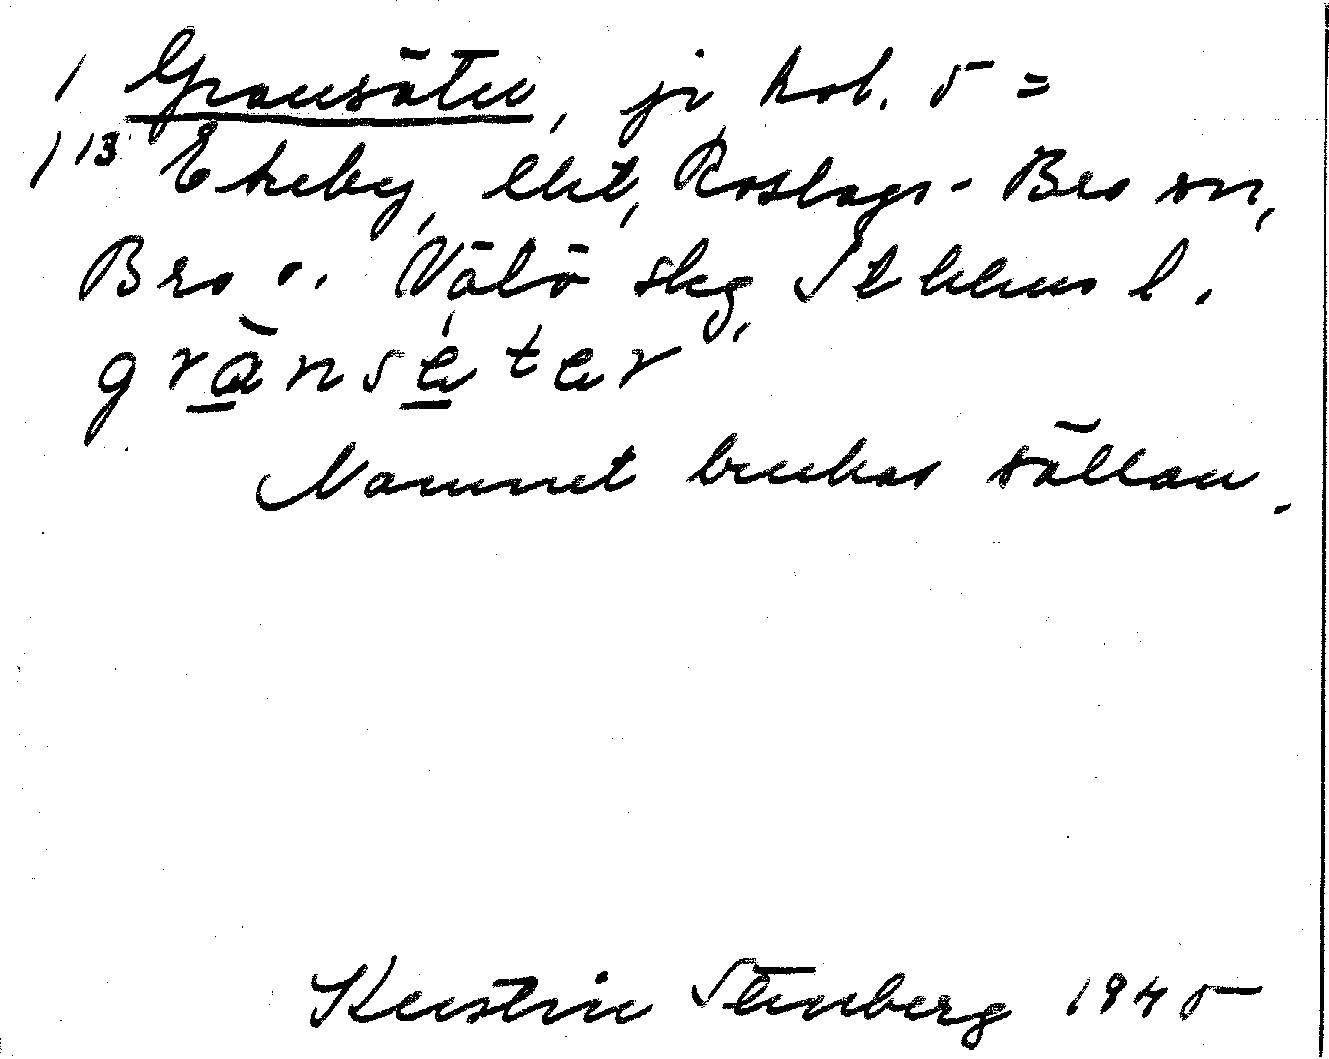 1 Gransäter, ji kol. 5 =
1 13 Ekeby, Roslags-Bro sn,
Bro o. Vätö skg Stkhms l.
grànsèter
Namnet brukas sällan.
Kerstin Stenberg 1945